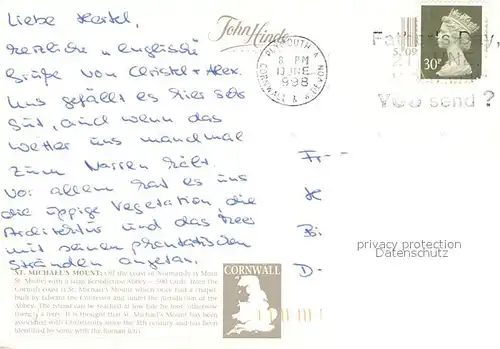 Liebe Hertel,
herzliche "englische"
Grüße von Christel + Alex.
Uns gefällt es hier sehr
gut, auch wenn das
Wetter uns manchmal
zum Narren hält.
Vor allem hat es uns
die üppige Vegetation, die
Architektur und das Meer
mit seinen phantastischen
Stränden angetan.
John Hinde
PLYMOUTH A
8 PM
13 JNE
1998
CORNWALL & W. DEVON
Father's Day,
21
You send?
30P
Fr--
H
Bi
D-
privacy protection
Datenschutz
ST. MICHAEL'S MOUNT: Off the coast of Normandy is Mont
St. Michel with a huge Benedictine Abbey - 500 yards from the
Cornish coast is St. Michael's Mount which once had a chapel
built by Edward the Confessor and under the jurisdiction of the
Abbey. The island can be reached at low tide by foot, otherwise
through a ferry. It is thought that St. Michael's Mount has been
associated with Christianity since the 8th century and has been
identified by some with the Roman Ictis.
CORNWALL